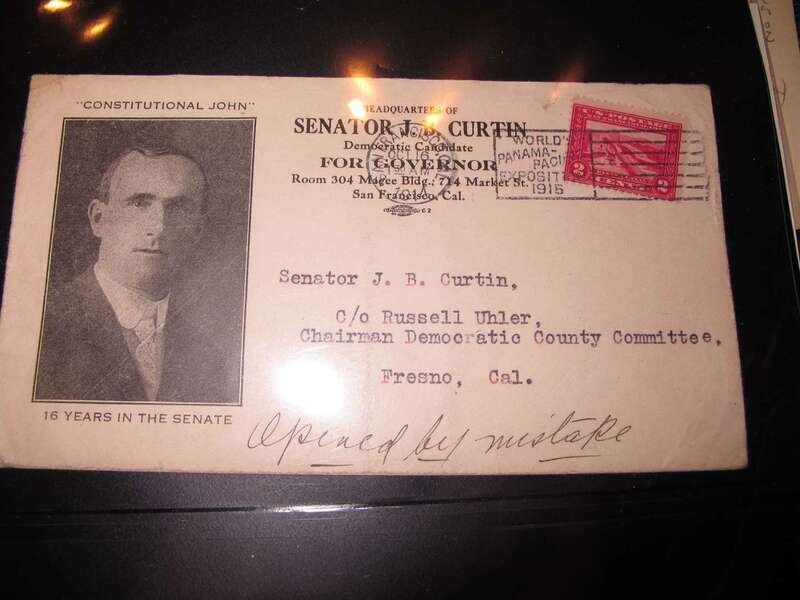 "CONSTITUTIONAL JOHN"
HEADQUARTERS OF
SENATOR J. B. CURTIN
Democratic Candidate
FOR GOVERNOR
Room 304 Magee Bldg., 714 Market St.
San Francisco, Cal.
SAN FRANCISCO
OCT 16
AM
1914
WORLD'S
PANAMA-
PACIFIC
EXPOSITION
1915
U.S. POSTAGE
2 CENTS 2
Senator J. B. Curtin,
C/o Russell Uhler,
Chairman Democratic County Committee,
Fresno, Cal.
16 YEARS IN THE SENATE
Opened by mistake